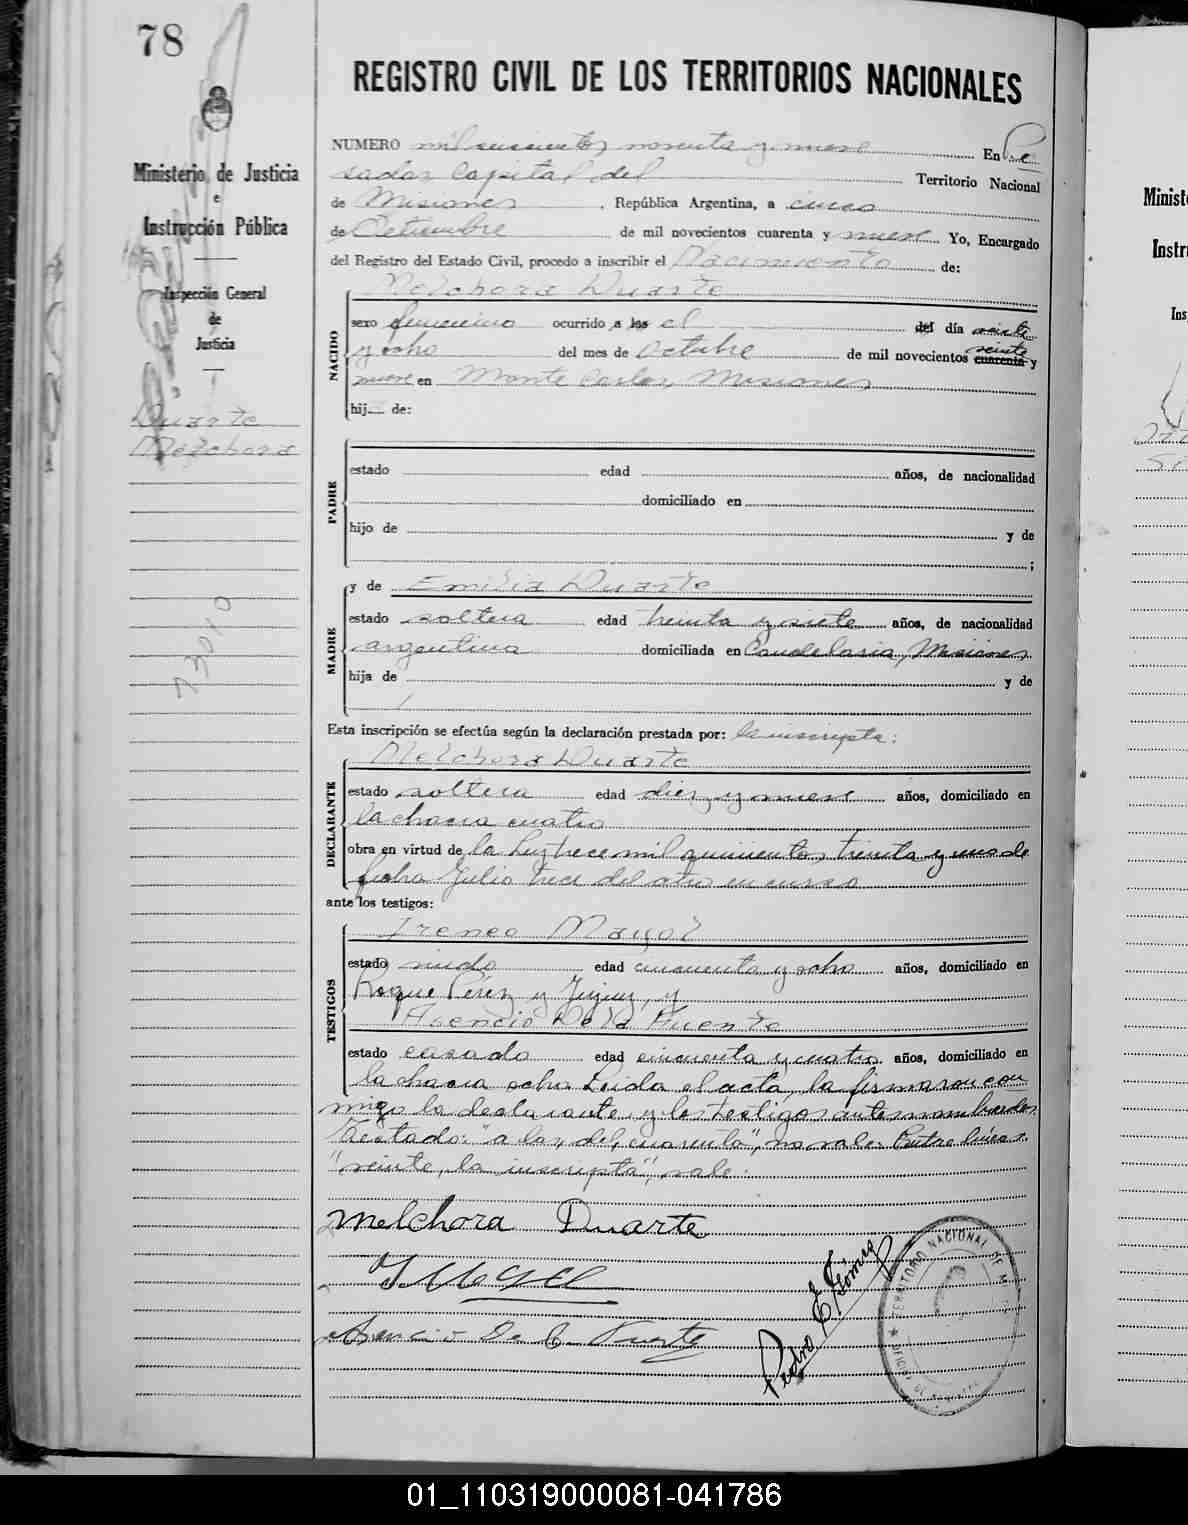 78
REGISTRO CIVIL DE LOS TERRITORIOS NACIONALES
Ministerio de Justicia
e
Instrucción Pública
Inspección General
de
Justicia
Duarte
Melchora
73010
NUMERO mil seiscientos noventa y nueve En Po
sadas Capital del Territorio Nacional
de Misiones, República Argentina, a cinco
de Octubre de mil novecientos cuarenta y nueve Yo, Encargado
del Registro del Estado Civil, procedo a inscribir el Nacimiento de:
NACIDO
Melchora Duarte
sexo femenino ocurrido a las el del día veinte
y ocho del mes de Octubre de mil novecientos cuarenta veinte y
nueve en Monte Carlo, Misiones
hij de:
PADRE
estado edad años, de nacionalidad
domiciliado en
hijo de y de
;
MADRE
y de Emilia Duarte
estado soltera edad treinta y siete años, de nacionalidad
argentina domiciliada en Candelaria, Misiones
hija de y de
Esta inscripción se efectúa según la declaración prestada por: la inscripta:
DECLARANTE
Melchora Duarte
estado soltera edad diez y nueve años, domiciliado en
la chacra cuatro
obra en virtud de la Ley trece mil quinientos treinta y uno de
fecha Julio trece del año en curso
ante los testigos:
TESTIGOS
Ireneo
estado viudo edad cincuenta y ocho años, domiciliado en
Roque Pérez y Jujuy, y
Asencio De la Fuente
estado casado edad cincuenta y cuatro años, domiciliado en
la chacra ocho Leida el acta, la firmaron con
migo la declarante y los testigos antes nombrados
Testado: "a las, del, cuarenta", no vale: Entre líneas:
"veinte, la inscripta", vale:
Melchora Duarte
Asencio De la Fuente
Pedro J. Gómez
TERRITORIO NACIONAL DE
01_110319000081-041786
Minist
Instr
Ins